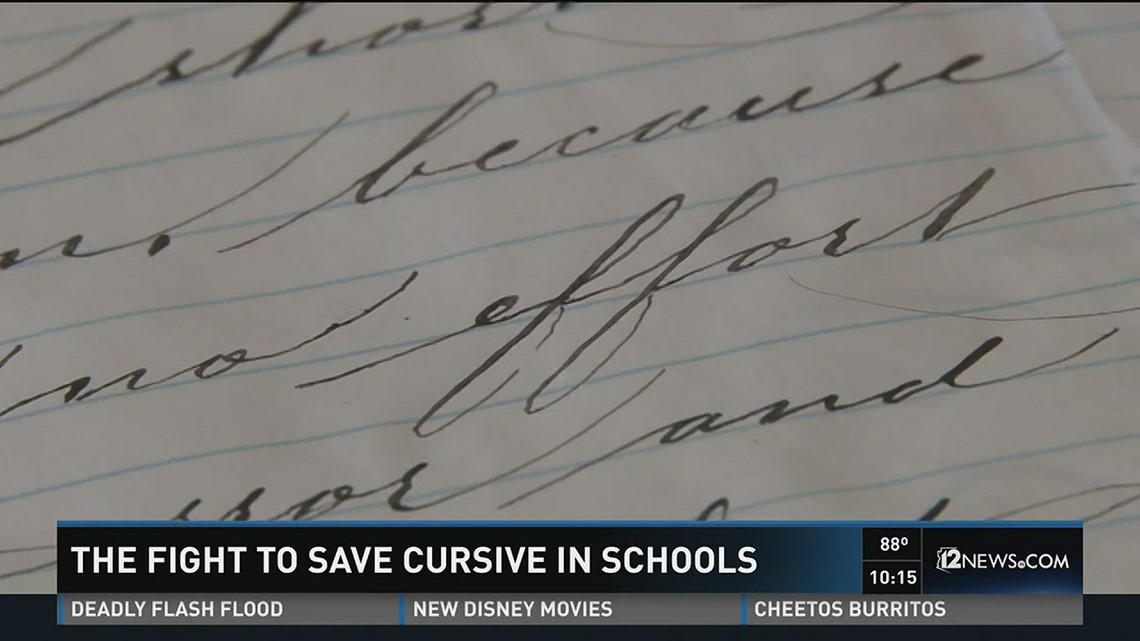 short
because
m.
effort
no
and
rror
THE FIGHT TO SAVE CURSIVE IN SCHOOLS
88°
10:15
12NEWS.COM
DEADLY FLASH FLOOD
NEW DISNEY MOVIES
CHEETOS BURRITOS